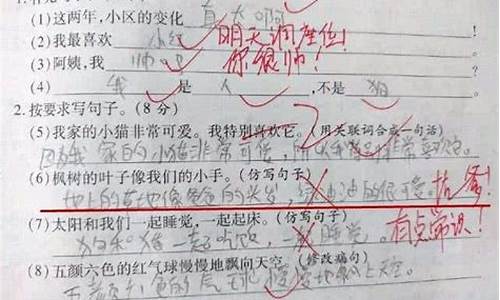 (1)这两年,小区的变化真大啊
(2)我最喜欢小红 明天调座位!
(3)阿姨,我帅吧 你很帅!
(4)我是人,不是狗
2.按要求写句子。(8分)
(5)我家的小猫非常可爱。我特别喜欢它。(用关联词合成一句话)
因为我家的小猫非常可爱,所以我特别非常喜欢它。
(6)枫树的叶子像我们的小手。(仿写句子)
地上的草地像爸爸的头发,绿油油的很可爱。 找爹!
(7)太阳和我们一起睡觉,一起起床。(仿写句子)
狗和猪一起吃饭,一起睡觉。 有点常识!
(8)五颜六色的红气球慢慢地飘向天空。(修改病句)
五颜六色的气球慢慢地飘上天空。